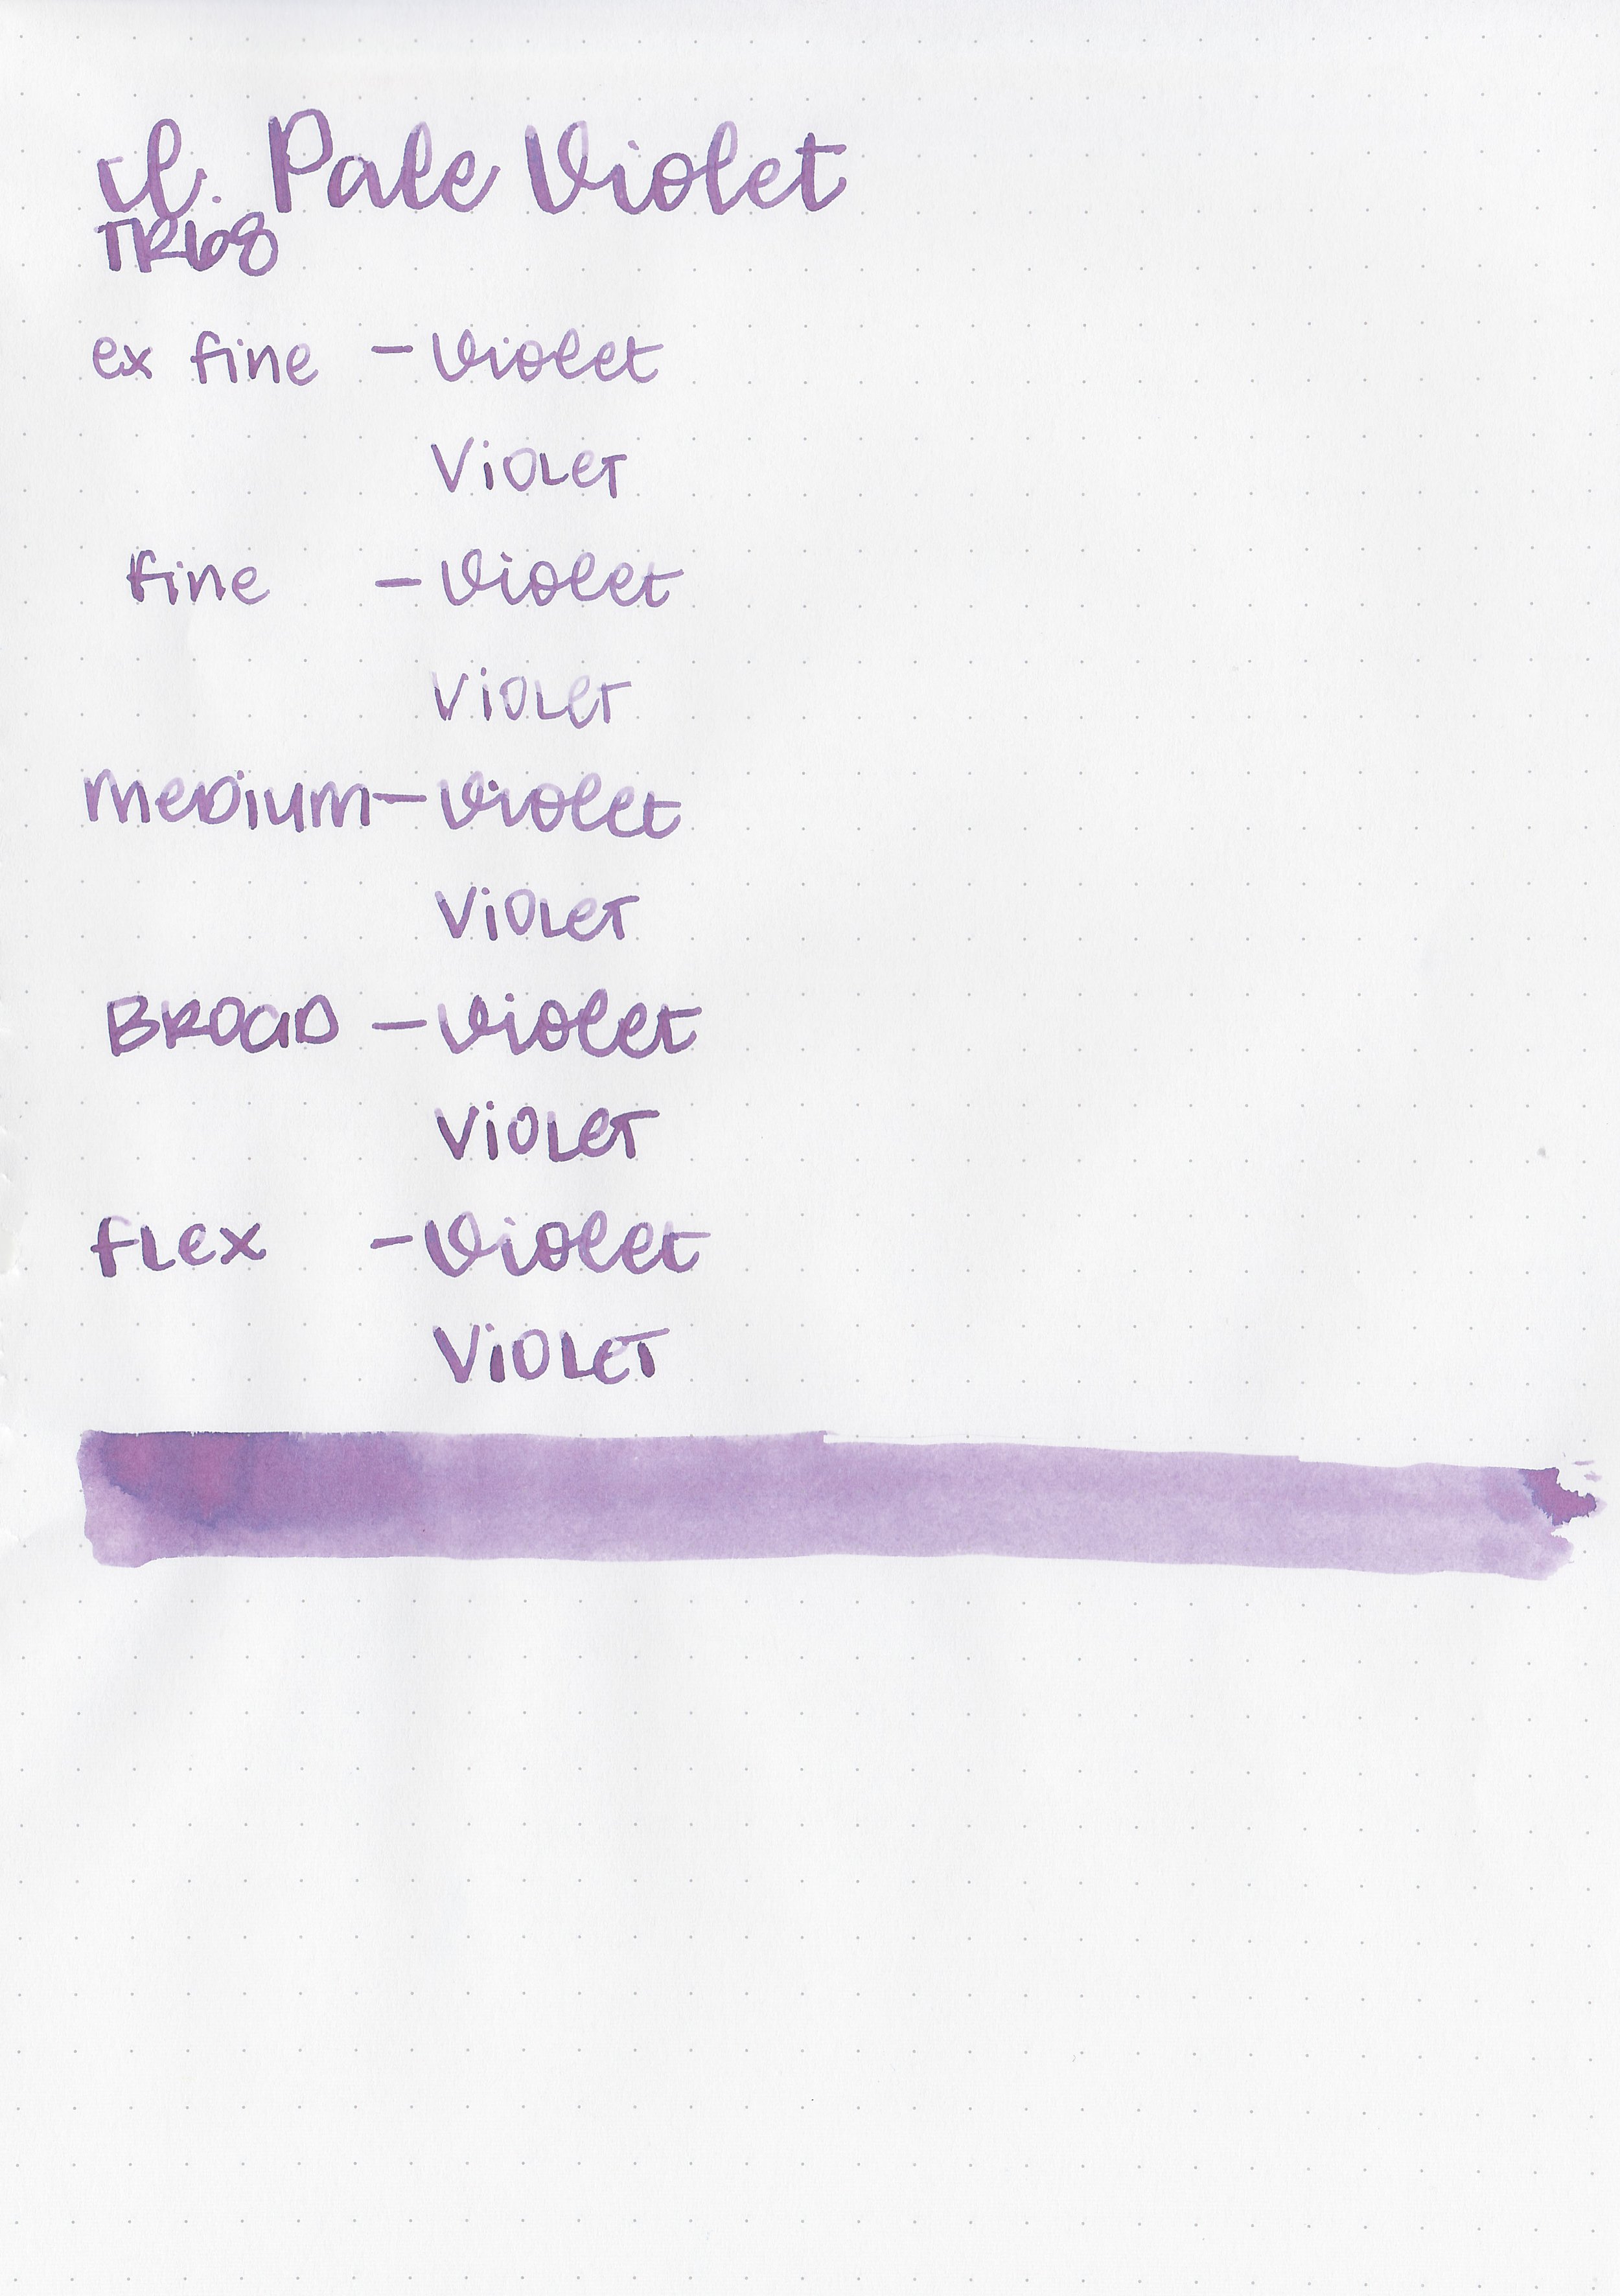 il. Pale Violet
TR68
ex fine - Violet
Violet
fine - Violet
Violet
Medium - Violet
Violet
Broad - Violet
Violet
Flex - Violet
Violet